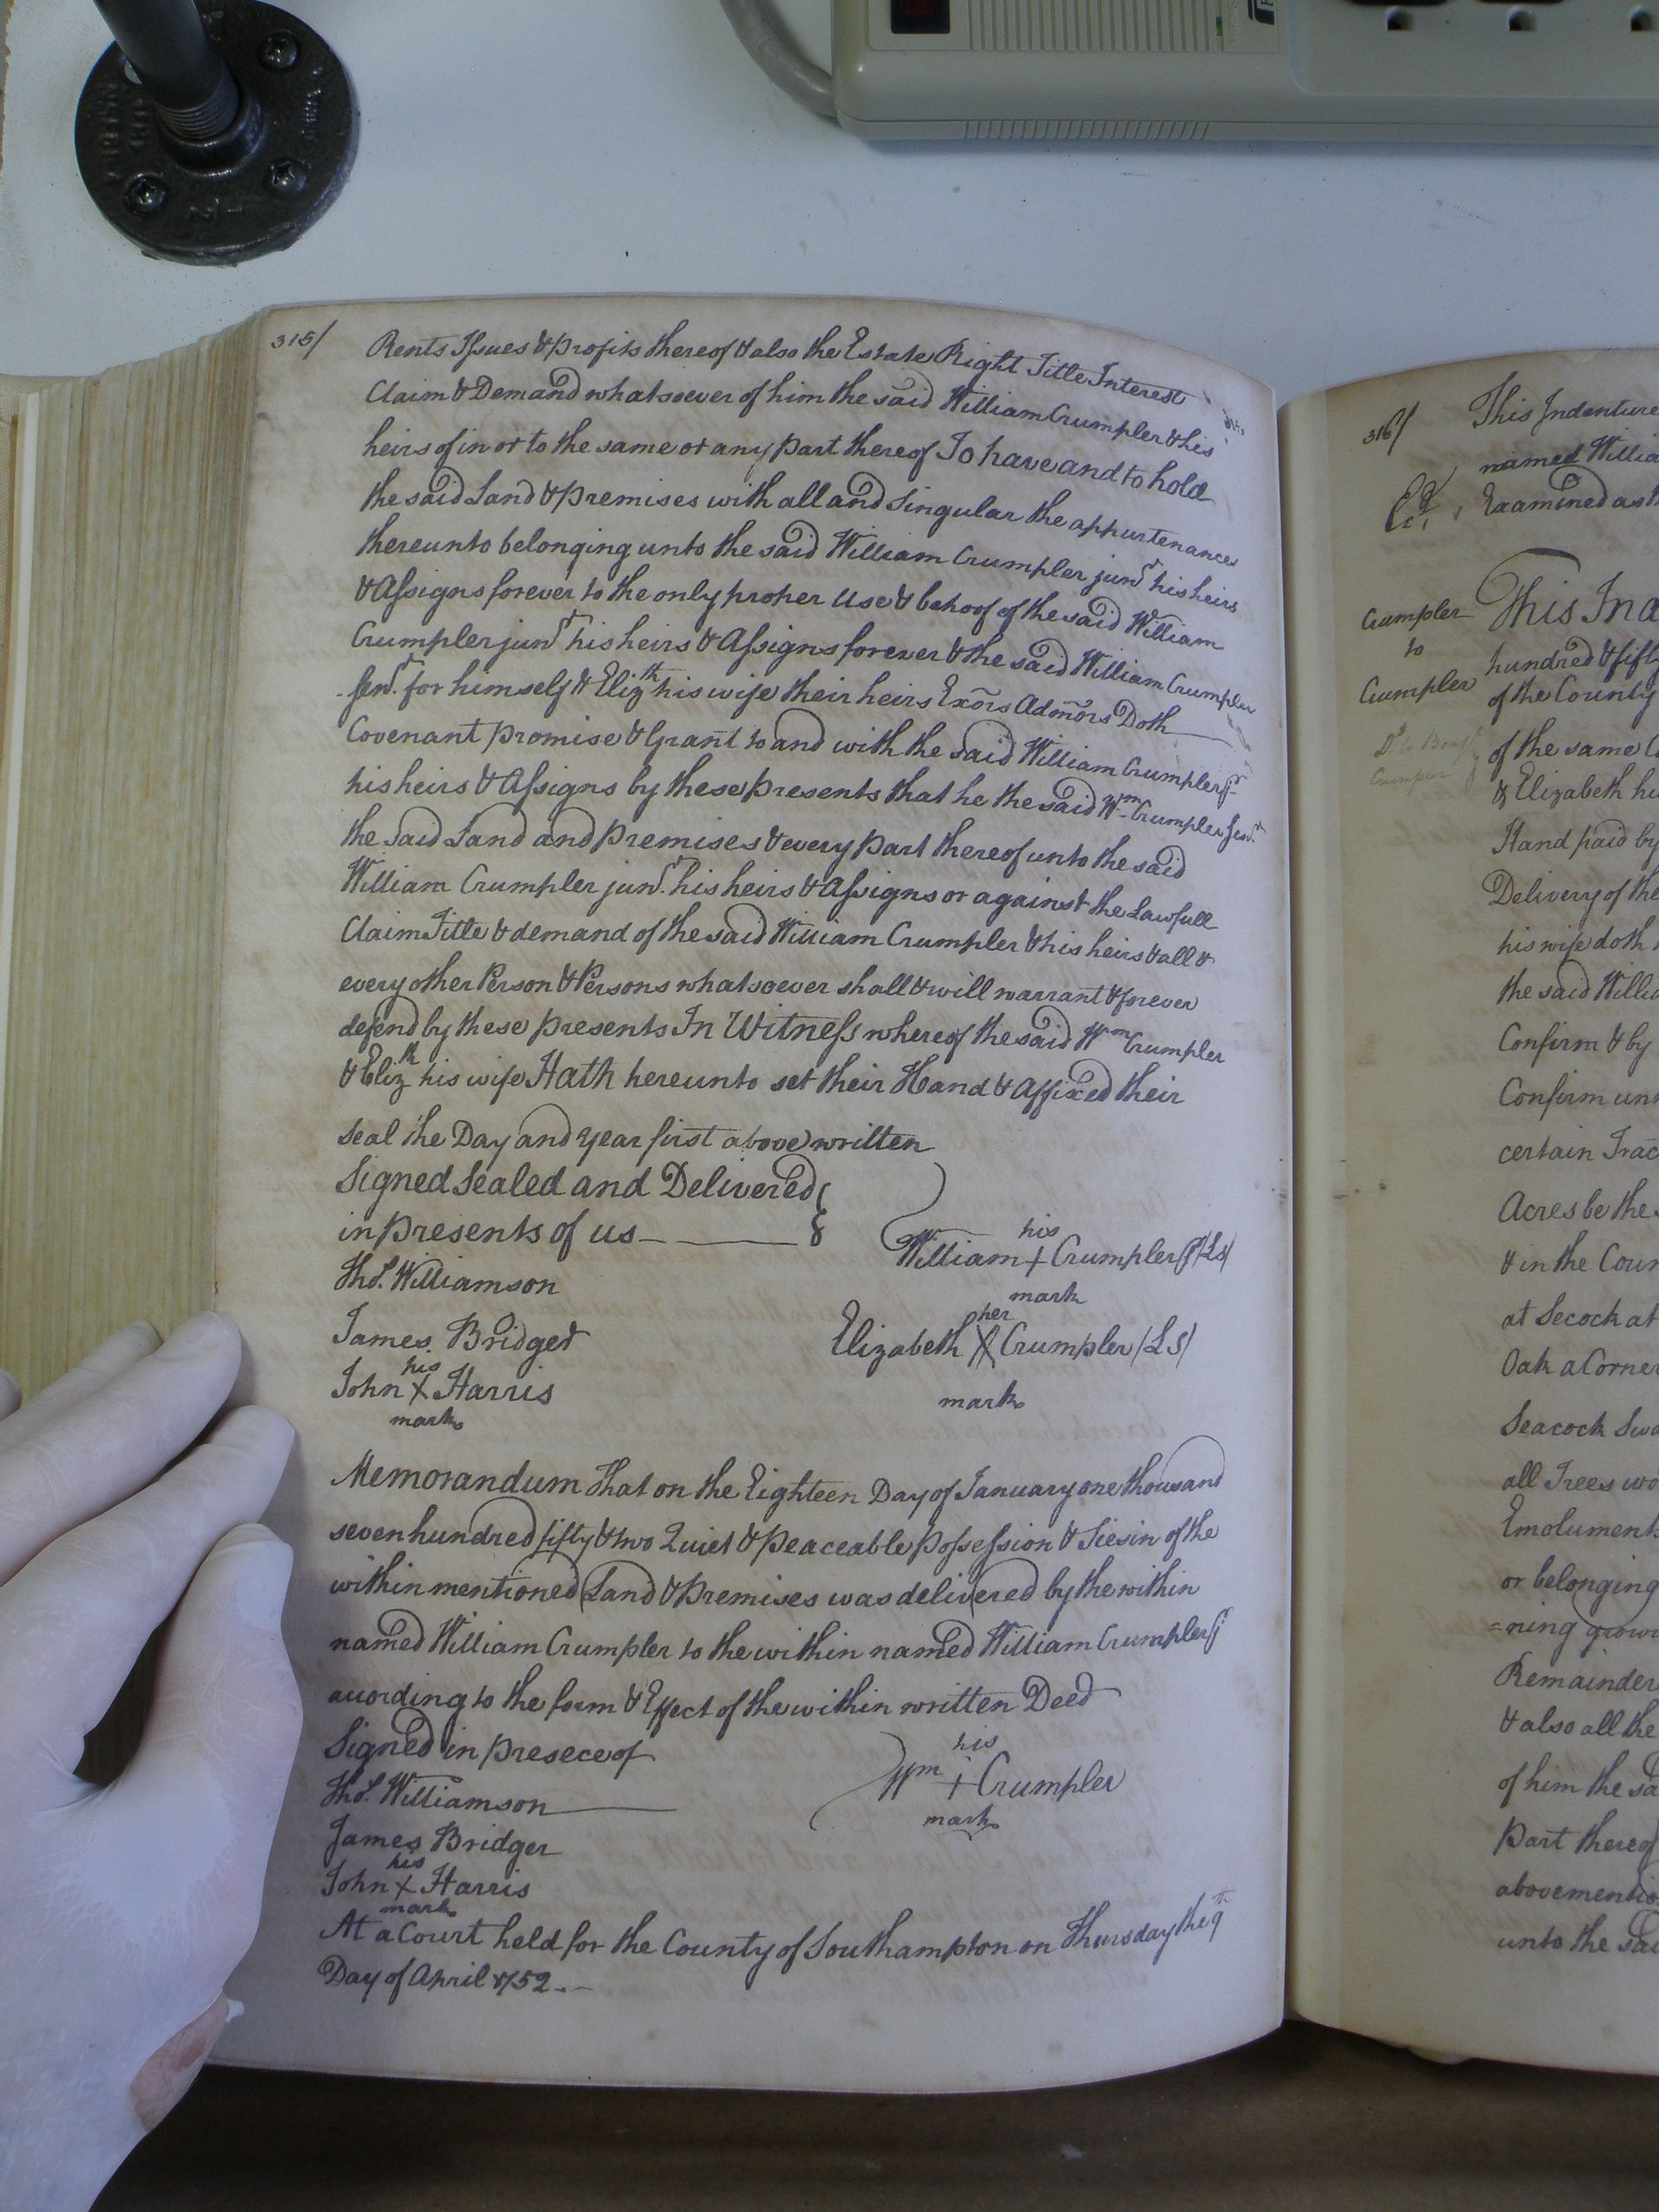 315/
Rents Issues & profits thereof & also the Estate Right Title Interest
Claim & Demand whatsoever of him the said William Crumpler & his
heirs of in or to the same or any part thereof To have and to hold
the said Land & premises with all and Singular the appurtenances
thereunto belonging unto the said William Crumpler junr his heirs
& Assigns forever to the only proper Use & behoof of the said William
Crumpler junr his heirs & Assigns forever & the said William Crumpler
Senr. for himself & Elizth his wife their heirs Exõrs Admõrs Doth
Covenant promise & Grant to and with the said William Crumpler jr
his heirs & Assigns by these presents that he the said Wm Crumpler Senr.
the said Land and premises & every part thereof unto the said
William Crumpler junr. his heirs & Assigns or against the Lawfull
Claim Title & demand of the said William Crumpler & his heirs & all &
every other Person & Persons whatsoever shall & will warrant & forever
defend by these presents In Witness whereof the said Wm Crumpler
& Elizth his wife Hath hereunto set their Hand & Affixed their
seal the Day and year first above written
Signed Sealed and Delivered
in presents of us
his
William + Crumpler (LS)
mark
Thos. Williamson
her
Elizabeth X Crumpler (LS)
mark
James Bridger
his
John X Harris
mark
Memorandum that on the Eighteen Day of January one thousand
seven hundred fifty & two Quiet & peaceable possession & Siesin of the
within mentioned Land & premises was delivered by the within
named William Crumpler to the within named William Crumpler j
acording to the form & Effect of the within written Deed
Signed in presece of
his
Wm + Crumpler
mark
Thos. Williamson
James Bridger
his
John X Harris
mark
At a Court held for the County of Southampton on Thursday the 9th
Day of April 1752
316/
This Indenture
named Willia
Examined as th
Crumpler
to
Crumpler
This Ind
hundred & fifty
of the County
of the same C
& Elizabeth his
Hand paid by
Delivery of the
his wife doth
the said Willia
Confirm & by
Confirm un
certain Trac
Acres be the
& in the Coun
at Secock at
Oak a Corner
Seacock Swa
all Trees wo
Emolument
or belonging
=ning grow
Remainder
& also all the
of him the sa
part thereof
abovementio
unto the sai